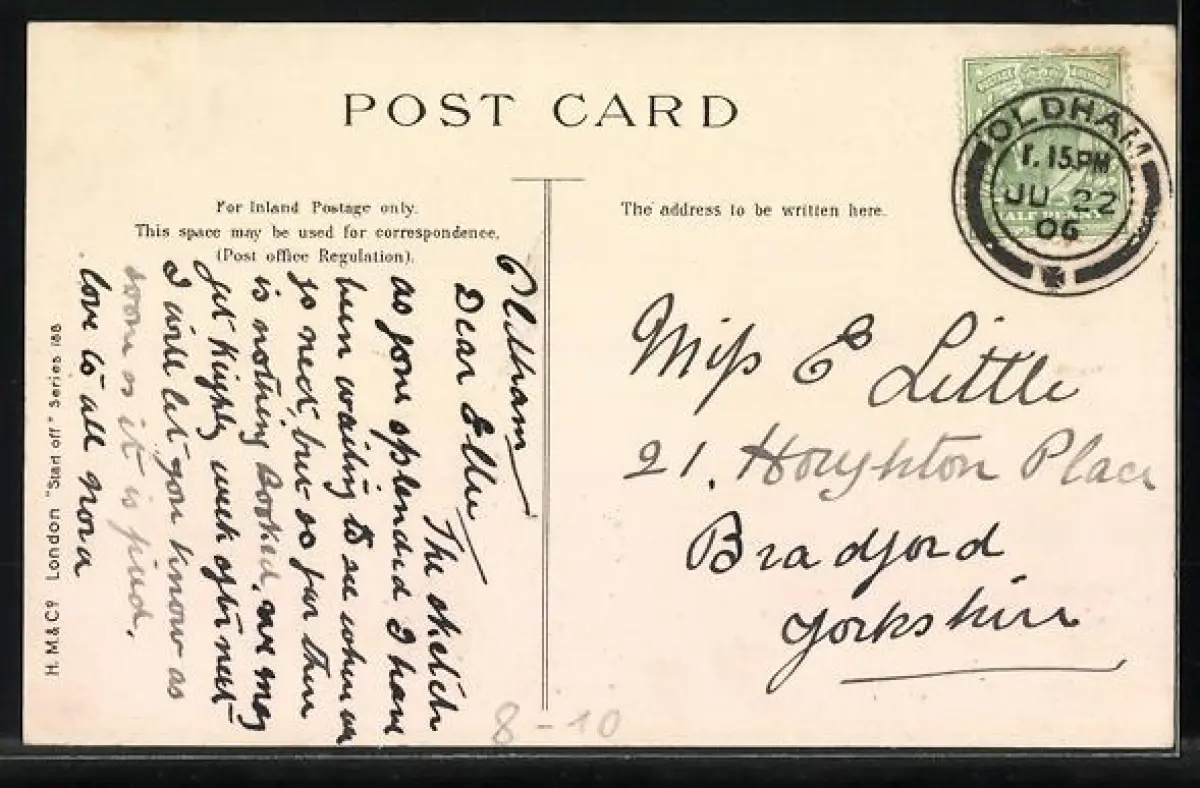 POST CARD
For Inland Postage only.
This space may be used for correspondence.
(Post office Regulation).
The address to be written here.
OLDHAM
1.15PM
JU 22
06
HALF PENNY
Oldham
Dear Ellie
The sketch
as gone splendid I have
been waiting to see when we
go next, but as yet there
is nothing Booked, we may
get Keighley week after next
I will let you know as
soon as it is fixed.
love to all Nora
Miss E Little
21, Houghton Place
Bradford
Yorkshire
H. M. & Co. London "Start off" Series 188
8-10